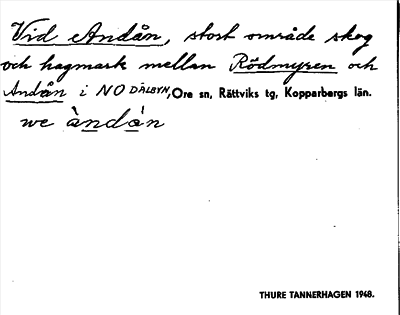 Vid Andån, stort område skog
och hagmark mellan Rödmyren och
Andån i NO DALBYN, Ore sn, Rättviks tg, Kopparbergs län.
we àndån
THURE TANNERHAGEN 1948.